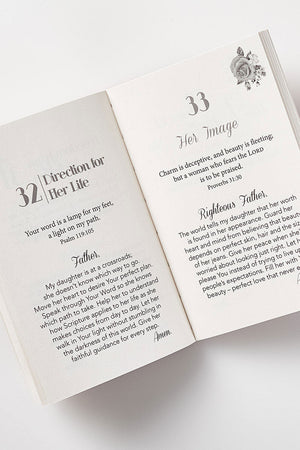 32 Direction for
Her Life
Your word is a lamp for my feet,
a light on my path.
Psalm 119:105
Father,
My daughter is at a crossroads;
she doesn't know which way to go.
Move her heart to desire Your perfect plan.
Speak through Your Word so she knows
which path to take. Help her to understand
how Scripture applies to her life as she
makes choices from day to day. Let her
walk in Your light without stumbling in
the darkness of this world. Give her
faithful guidance for every step.
Amen.
33
Her Image
Charm is deceptive, and beauty is fleeting,
but a woman who fears the LORD
is to be praised.
Proverbs 31:30
Righteous Father,
The world tells my daughter that her worth
is found in her appearance. Guard her
heart and mind from believing that beauty
depends on perfect skin, hair and the size
of her jeans. Give her peace when she
worried about looking just right. Let her
please You instead of trying to live up
people's expectations. Fill her with
beauty – perfect love that never